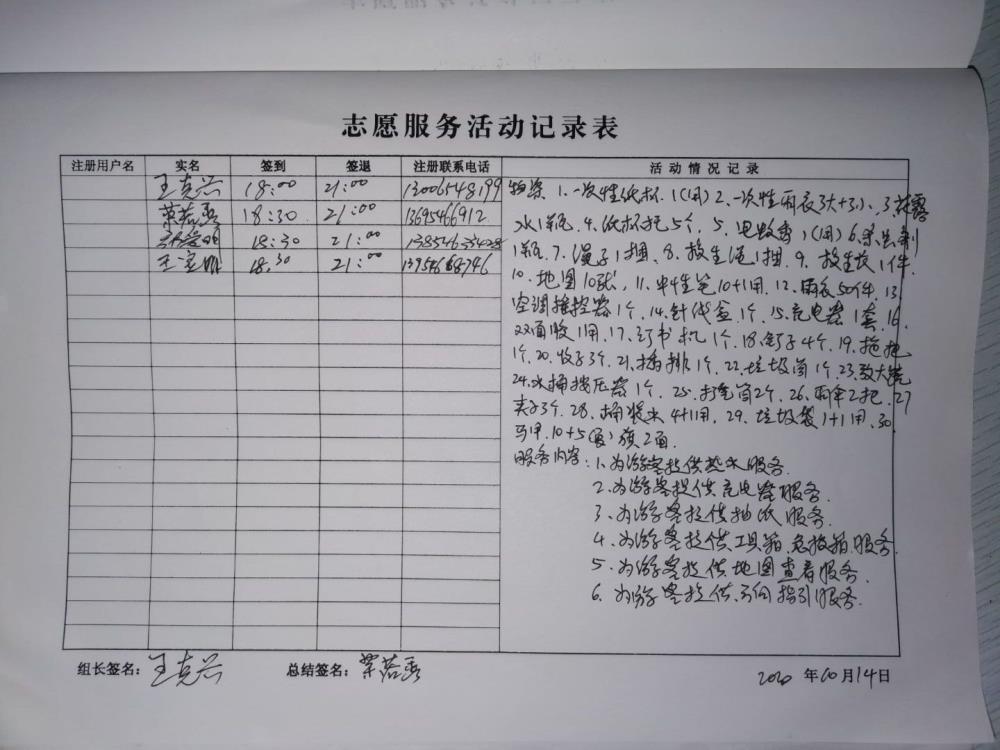 志愿服务活动记录表
注册用户名 实名 签到 签退 注册联系电话 活动情况记录
王克兴 18:00 21:00 13006548199
荣若 18:30 21:00 13695466912
18:30 21:00
王宝 18:30 21:00
物资 1.一次性纸杯 1(用) 2.一次性雨衣3大+3小、3.花露
水1瓶、4.纸杯托5个、5.电蚊香1(用) 6.杀虫剂
1瓶、7.绳子1捆、8.救生绳1捆、9.救生衣1件
10.地图10张、11.中性笔10+1用、12.雨衣50件、13.
空调摇控器1个、14.针线盒1个、15.充电器1套、16.
双面胶1用、17.订书机1个、18.钉子4个、19.拖把
1个、20.、21.插排1个、22.垃圾筒1个、23.
24.水桶按压器1个、25.打气筒2个、26.雨伞2把、27
夹子3个、28.桶装水4+1用、29.垃圾袋1+1用、30.
马甲10+5 旗2面
服务内容:1.为游客提供热水服务.
2.为游客提供充电器服务.
3.为游客提供抽纸服务.
4.为游客提供工具箱、急救箱服务
5.为游客提供地图查看服务.
6.为游客提供方向指引服务.
组长签名: 王克兴 总结签名: 荣若 2020年10月14日